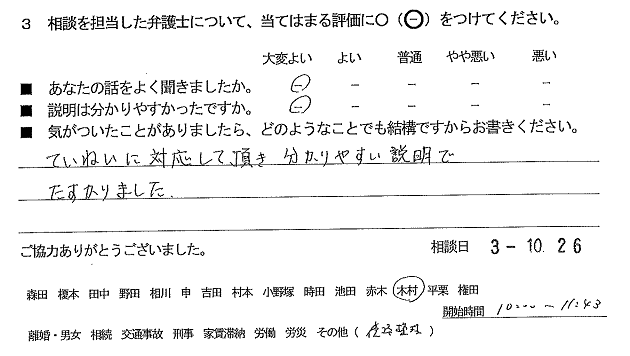 3 相談を担当した弁護士について、当てはまる評価に〇（㊀）をつけてください。
大変よい よい 普通 やや悪い 悪い
■ あなたの話をよく聞きましたか。 － － － － －
■ 説明は分かりやすかったですか。 － － － － －
■ 気がついたことがありましたら、どのようなことでも結構ですからお書きください。
ていねいに対応して頂き 分かりやすい説明で
たすかりました．
ご協力ありがとうございました。 相談日 3－10.26
森田 榎本 田中 野田 相川 申 吉田 村本 小野塚 時田 池田 赤木 木村 平栗 権田
開始時間 10:00～11:43
離婚・男女 相続 交通事故 刑事 家賃滞納 労働 労災 その他（債務整理）